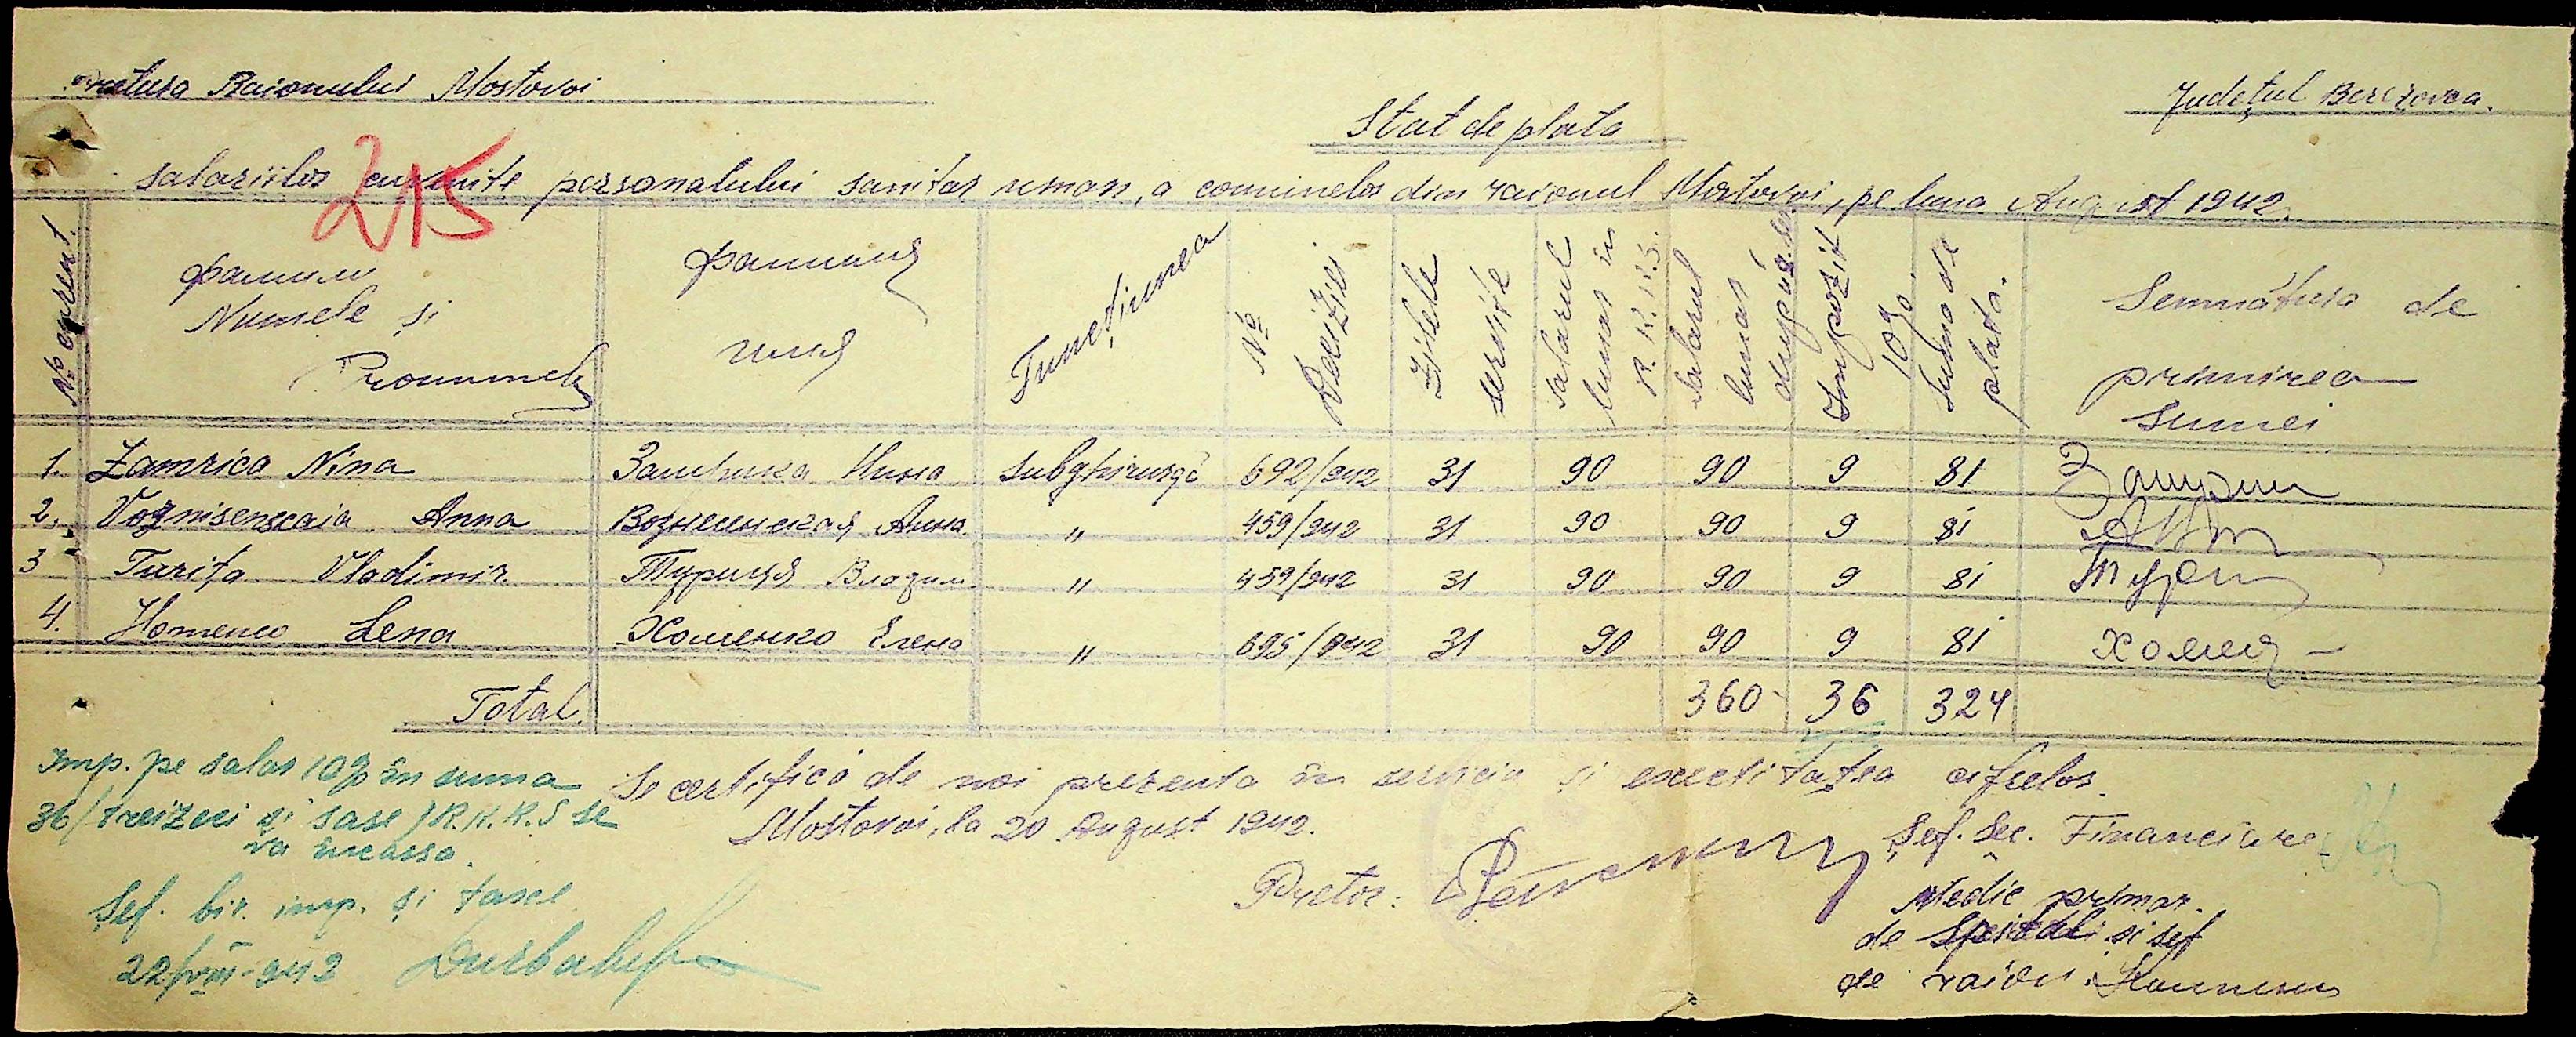 Pretura Raionului Mostovoi
Județul Berezovca.
Stat de plata
215
salariilor cuvenite personalului sanitar uman, a comunelor din raionul Mostovoi, pe luna August 1942.
№ curent. Фамили Numele și Pronumele Фамилия имя Funcțiunea № Deciziei Zilele servite Salarul lunar în R.K.K.S. Salarul lunar după Impozit 10% Suma de plată. Semnătura de primirea sumei
1. Zamrica Nina Замрика Нина Subghirurg 692/942 31 90 90 9 81
2. Voznisenscaia Anna Вознесенская Анна " 459/942 31 90 90 9 81
3 Turița Vladimir Турица Владим " 459/942 31 90 90 9 81 Тур
4. Homenco Lena Хоменко Елена " 695/942 31 90 90 9 81 Хомен
Total 360 36 324
Imp. pe salar 10% în suma
36/treizeci și sase/R.K.K.S se
va încassa.
Șef. bir. imp. și taxe
22/VIII-942
Se certifică de noi prezenta în serviciu și exactitatea cifrelor.
Mostovoi, la 20 August 1942.
Pretor:
Șef. Sec. Financiare
Medic primar
de Spitalul și șef
de raion